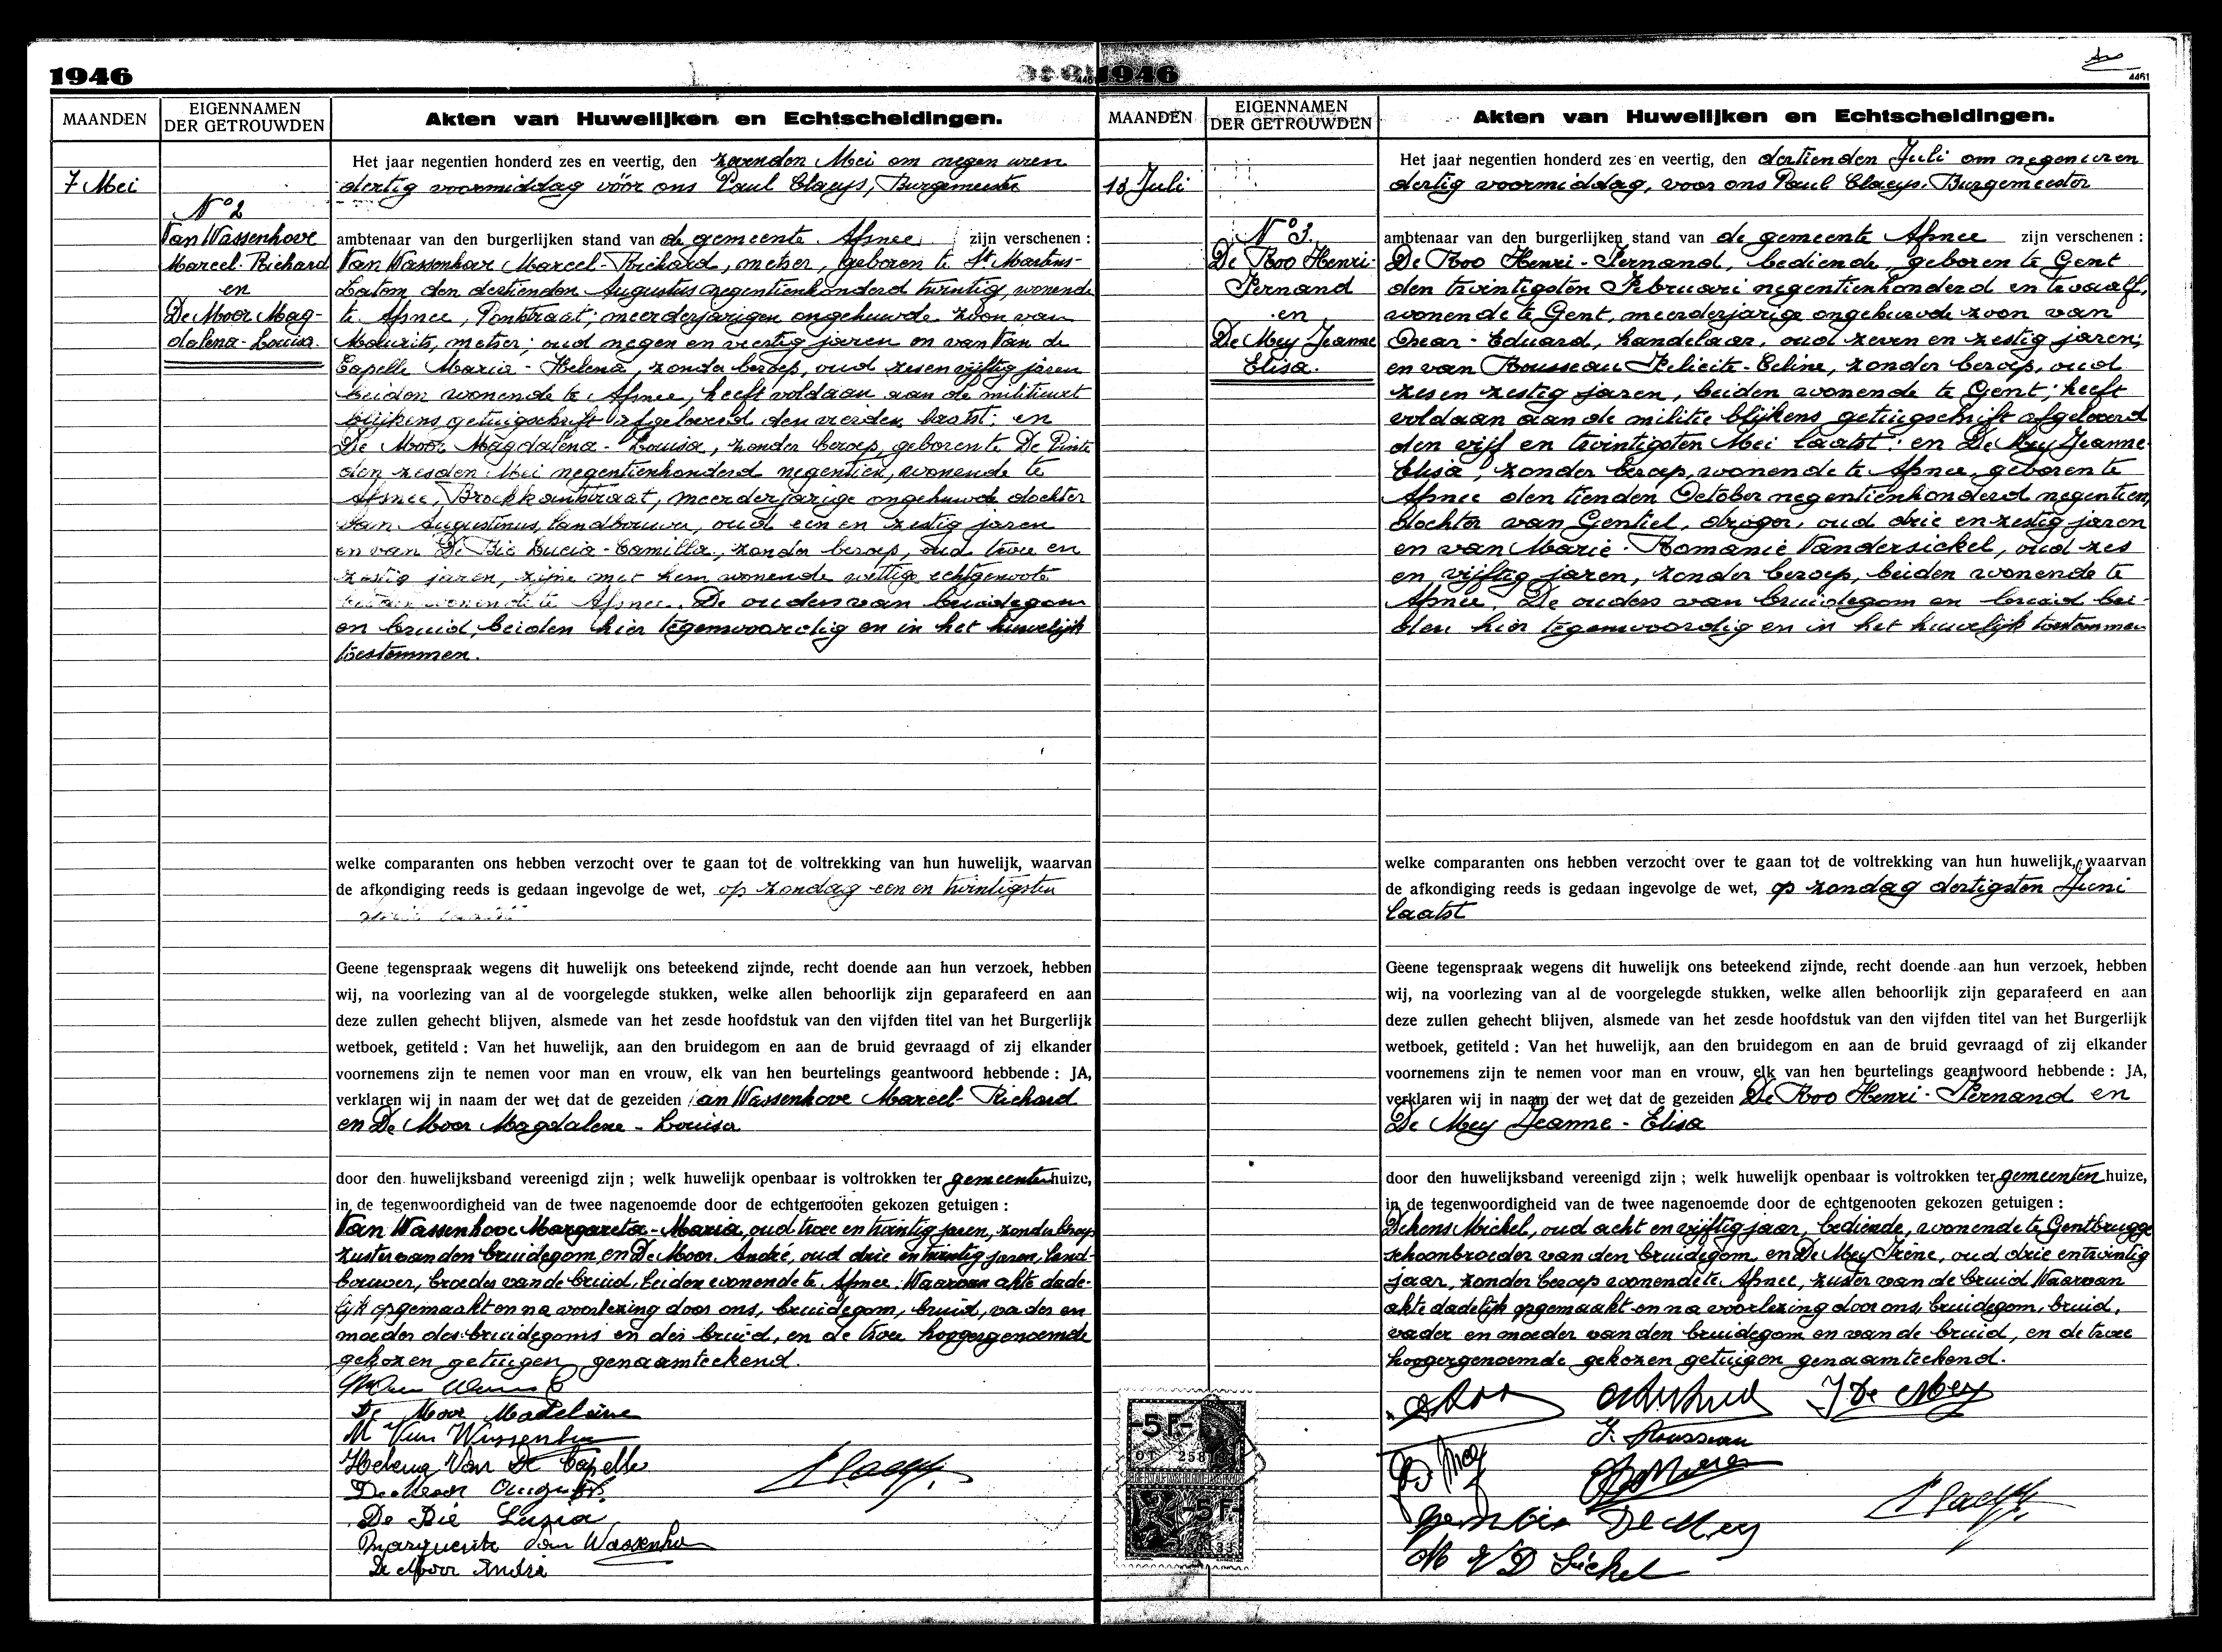 1946
MAANDEN
EIGENNAMEN
DER GETROUWDEN
Akten van Huwelijken en Echtscheidingen.
7 Mei
N° 2
Van Wassenhove
Marcel-Richard
en
De Moor Mag-
dalena-Louisa.
Het jaar negentien honderd zes en veertig, den zevenden Mei om negen uren
dertig voormiddag vóór ons Paul Claeys, Burgemeester
ambtenaar van den burgerlijken stand van de gemeente Afsnee zijn verschenen :
Van Wassenhove Marcel-Richard, metser, geboren te St Martens-
Latem den dertienden Augustus negentienhonderd twintig, wonende
te Afsnee, Pontstraat; meerderjarigen ongehuwde zoon van
Maurits, metser; oud negen en veertig jaren en van Van de
Capelle Maria-Helena, zonder beroep, oud zes en vijftig jaren
beiden wonende te Afsnee, heeft voldaan aan de militiewet
blijkens getuigschrift afgeleverd den vierden laatst; en
De Moor Magdalena-Louisa, zonder beroep, geboren te De Pinte
den zesden Mei negentienhonderd negentien, wonende te
Afsnee, Broekkantstraat, meerderjarige ongehuwde dochter
van Augustinus, landbouwer, oud een en zestig jaren
en van De Bie Lucia-Camilla, zonder beroep, oud twee en
zestig jaren, zijne met hem wonende wettige echtgenoote
beiden wonende te Afsnee. De ouders van bruidegom
en bruid, beiden hier tegenwoordig en in het huwelijk
toestemmen.
welke comparanten ons hebben verzocht over te gaan tot de voltrekking van hun huwelijk, waarvan
de afkondiging reeds is gedaan ingevolge de wet, op zondag een en twintigsten
laatst
Geene tegenspraak wegens dit huwelijk ons beteekend zijnde, recht doende aan hun verzoek, hebben
wij, na voorlezing van al de voorgelegde stukken, welke allen behoorlijk zijn geparafeerd en aan
deze zullen gehecht blijven, alsmede van het zesde hoofdstuk van den vijfden titel van het Burgerlijk
wetboek, getiteld : Van het huwelijk, aan den bruidegom en aan de bruid gevraagd of zij elkander
voornemens zijn te nemen voor man en vrouw, elk van hen beurtelings geantwoord hebbende : JA,
verklaren wij in naam der wet dat de gezeiden Van Wassenhove Marcel-Richard
en De Moor Magdalene-Louisa
door den huwelijksband vereenigd zijn ; welk huwelijk openbaar is voltrokken ter gemeentenhuize,
in de tegenwoordigheid van de twee nagenoemde door de echtgenooten gekozen getuigen :
Van Wassenhove Margareta-Maria, oud twee en twintig jaren, zonder beroep
zuster van den bruidegom, en De Moor André, oud drie en twintig jaren, land-
bouwer, broeder van de bruid, beiden wonende te Afsnee. Waarvan akte dade-
lijk opgemaakt en na voorlezing door ons, bruidegom, bruid, vader en
moeder des bruidegoms en der bruid, en de twee hoogergenoemde
gekozen getuigen genaamteekend.
De Moor Madeleine
M Van Wassenhove
Helena Van De Capelle
Demoor August
De Bie Lusia
Marguerite Van Wassenhove
De Moor André
P Claeys
1946
4461
MAANDEN
EIGENNAMEN
DER GETROUWDEN
Akten van Huwelijken en Echtscheidingen.
13 Juli
N° 3.
De Roo Henri-
Fernand
en
De Mey Jeanne
Elisa.
Het jaar negentien honderd zes en veertig, den dertienden Juli om negen uren
dertig voormiddag, voor ons Paul Claeys, Burgemeester
ambtenaar van den burgerlijken stand van de gemeente Afsnee zijn verschenen :
De Roo Henri-Fernand, bediende, geboren te Gent
den twintigsten Februari negentienhonderd en twaalf,
wonende te Gent, meerderjarige ongehuwde zoon van
Oscar-Eduard, handelaar, oud zeven en zestig jaren;
en van Rousseau Felicite-Celine, zonder beroep, oud
zes en zestig jaren, beiden wonende te Gent; heeft
voldaan aan de militie blijkens getuigschrift afgeleverd
den vijf en twintigsten Mei laatst: en De Mey Jeanne
Elisa, zonder beroep, wonende te Afsnee, geboren te
Afsnee den tienden October negentienhonderd negentien,
dochter van Gentiel, droger, oud drie en zestig jaren
en van Marie-Romanie Vandersickel, oud zes
en vijftig jaren, zonder beroep, beiden wonende te
Afsnee. De ouders van bruidegom en bruid bei-
den hier tegenwoordig en in het huwelijk toestemmen
welke comparanten ons hebben verzocht over te gaan tot de voltrekking van hun huwelijk, waarvan
de afkondiging reeds is gedaan ingevolge de wet, op zondag dertigsten Juni
laatst
Geene tegenspraak wegens dit huwelijk ons beteekend zijnde, recht doende aan hun verzoek, hebben
wij, na voorlezing van al de voorgelegde stukken, welke allen behoorlijk zijn geparafeerd en aan
deze zullen gehecht blijven, alsmede van het zesde hoofdstuk van den vijfden titel van het Burgerlijk
wetboek, getiteld : Van het huwelijk, aan den bruidegom en aan de bruid gevraagd of zij elkander
voornemens zijn te nemen voor man en vrouw, elk van hen beurtelings geantwoord hebbende : JA,
verklaren wij in naam der wet dat de gezeiden De Roo Henri-Fernand en
De Mey Jeanne-Elisa
door den huwelijksband vereenigd zijn ; welk huwelijk openbaar is voltrokken ter gemeentenhuize,
in de tegenwoordigheid van de twee nagenoemde door de echtgenooten gekozen getuigen :
Dekens Michel, oud acht en vijftig jaar, bediende, wonende te Gentbrugge
schoonbroeder van den bruidegom, en De Mey Irène, oud drie en twintig
jaar, zonder beroep wonende te Afsnee, zuster van de bruid Waarvan
akte dadelijk opgemaakt en na voorlezing door ons, bruidegom, bruid,
vader en moeder van den bruidegom en van de bruid, en de twee
hoogergenoemde gekozen getuigen genaamteekend.
J De Mey
F. Rousseau
De Mey
M V D Sickel
P Claeys
-5F-
-5F-